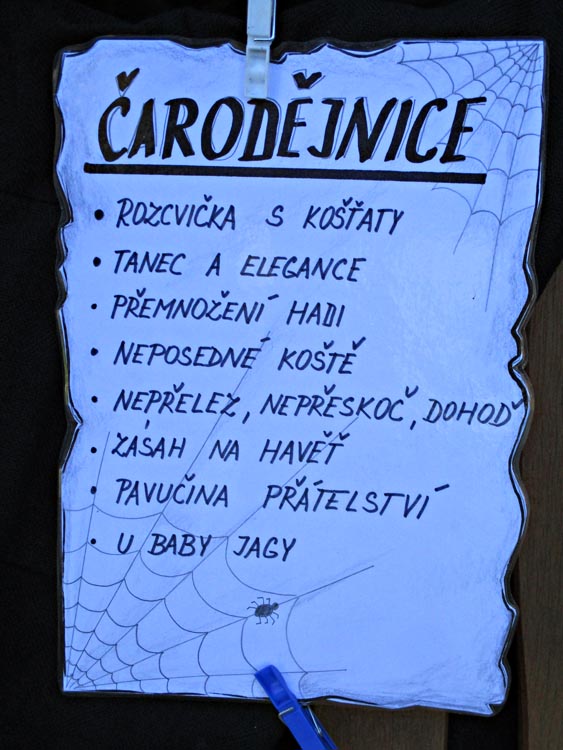 ČARODĚJNICE
• ROZCVIČKA S KOŠŤATY
• TANEC A ELEGANCE
• PŘEMNOŽENÍ HADI
• NEPOSEDNÉ KOŠTĚ
• NEPŘELEZ, NEPŘESKOČ, DOHOĎ
• ZÁSAH NA HAVĚŤ
• PAVUČINA PŘÁTELSTVÍ
• U BABY JAGY